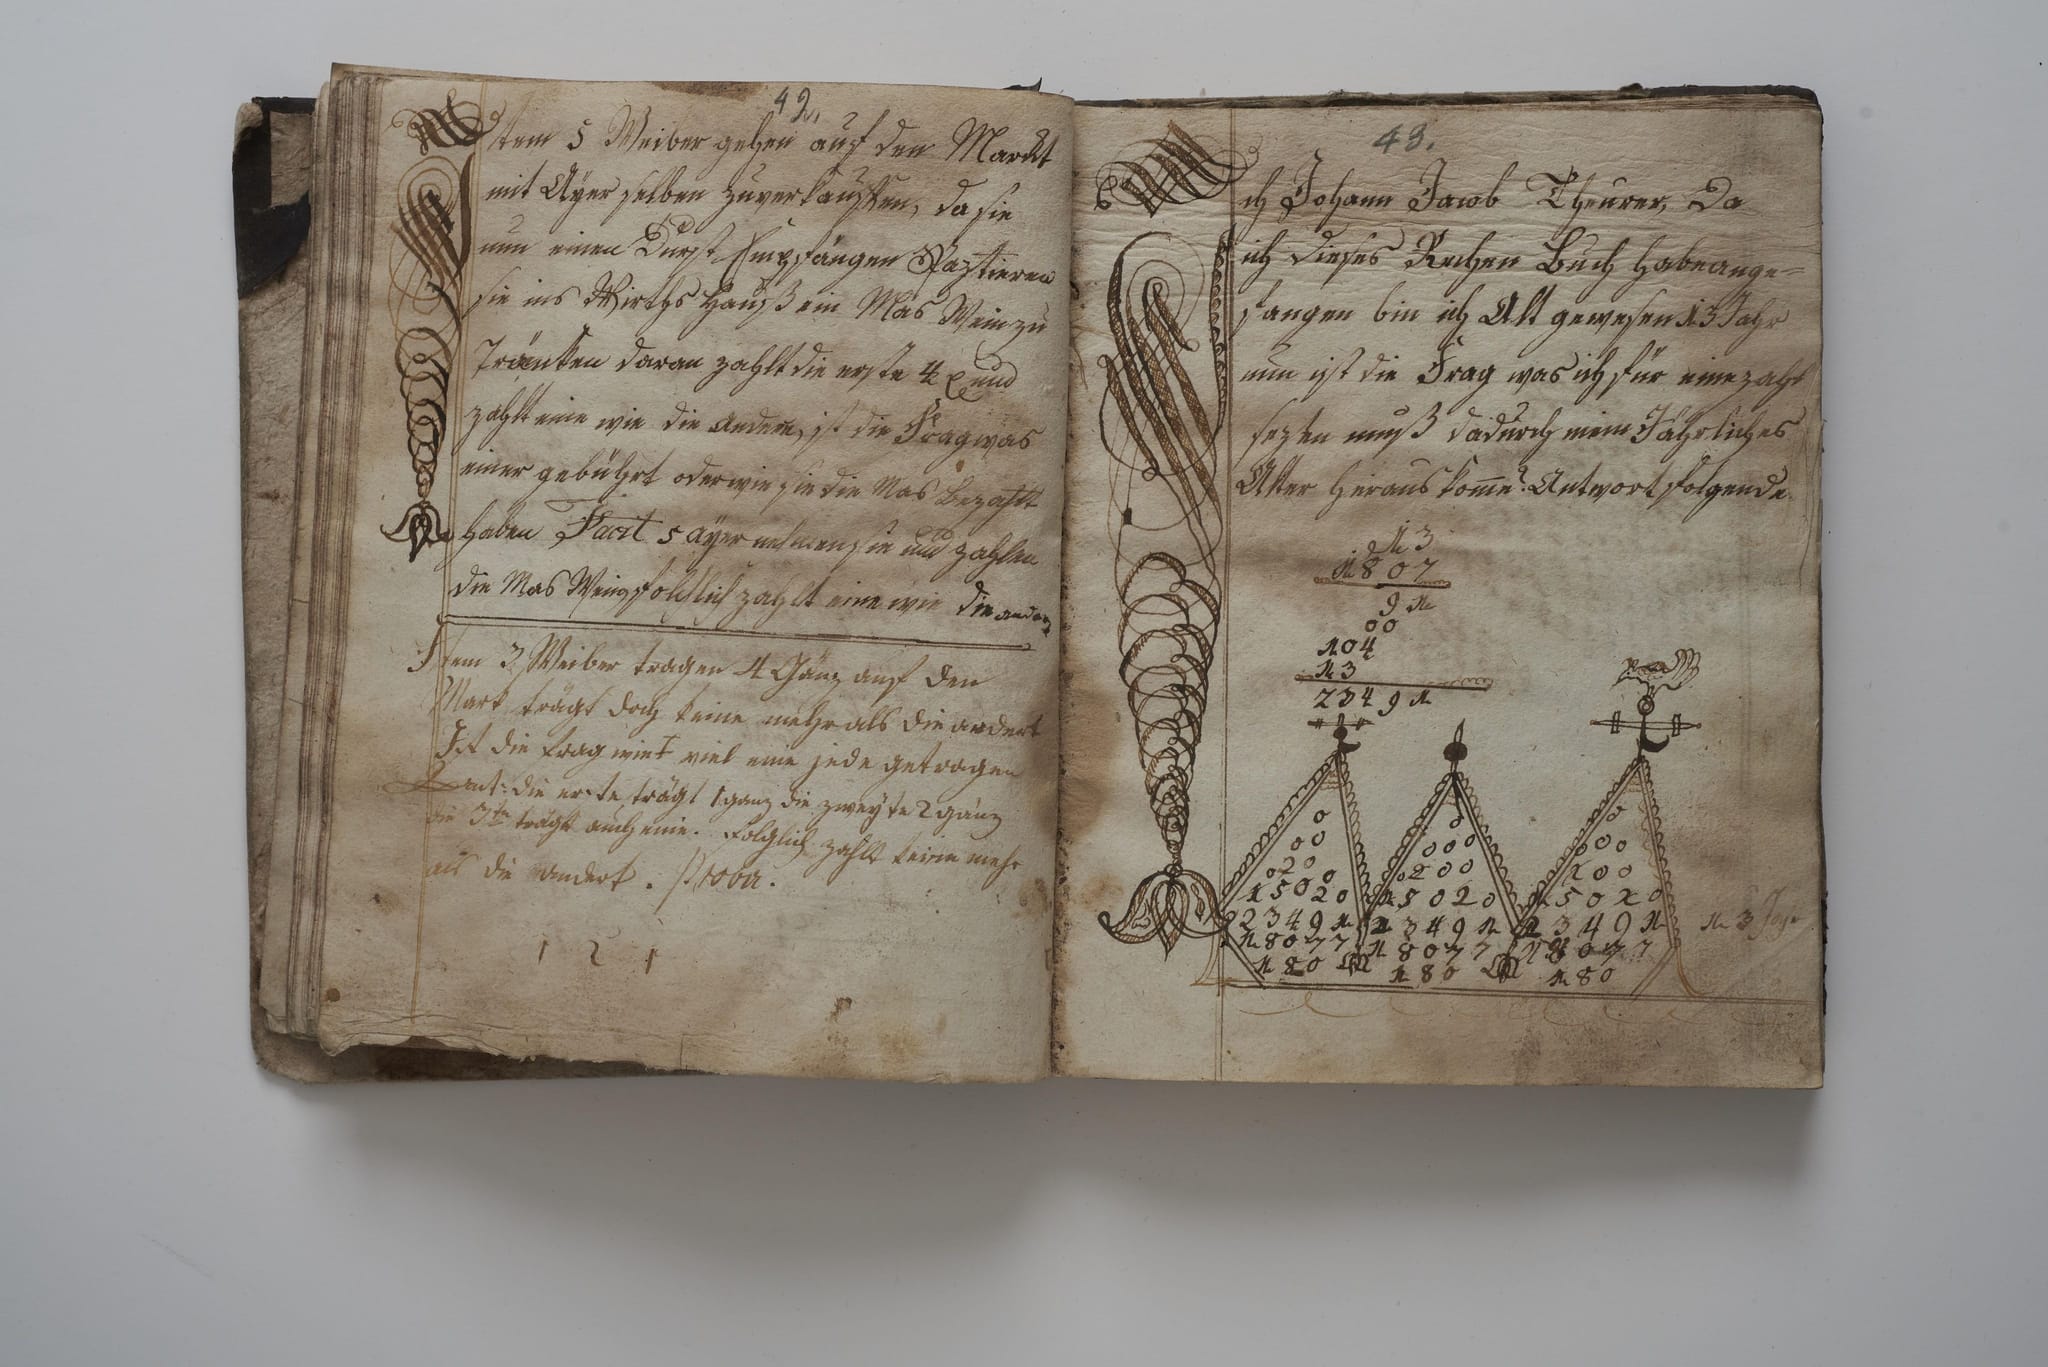 42.
Item 5 Weiber gehen auf den Marckt
mit Ayer selben zuverkauffen, da sie
nun einen Durst Empfangen Pastieren
sie ins Wirths Hauß ein Mas Wein zu
Träncken daran zahlt die erste 4 x und
zahlt eine wie die andere, ist die Frag was
einer gebührt oder wie sie die Mas Bezahlt
haben Facit 5 ayer nehmen sie und zahlen
die Mas Wein, folchlich zahlt eine wie die andere
Item 3 Weiber tragen 4 Gänz auf den
Mark trägt doch keine mehr als die andert
Ist die frag viel eine jede getragen
ant: die erste trägt 1 ganz die zweyte 2 gänz
die 3te trägt auch eine. Folglich zahlt keine mehr
als die andert. Proba.
1 2 1
43.
Ich Johann Jacob Theurer, Da
ich dieses Rechen Buch habe ange=
fangen bin ich Alt gewesen 13 Jahr
nun ist die Frag was ich für eine zahl
sezen muß dadurch mein Jährliches
Alter heraus kome? Antwort folgende.
13
1807
91
00
104
13
23491
0 0 0
00 000 000
020 0 0200 200
15020 15020 15020
23491 23491 23491 13 Jahr
18077 18077 18077
180 180 180